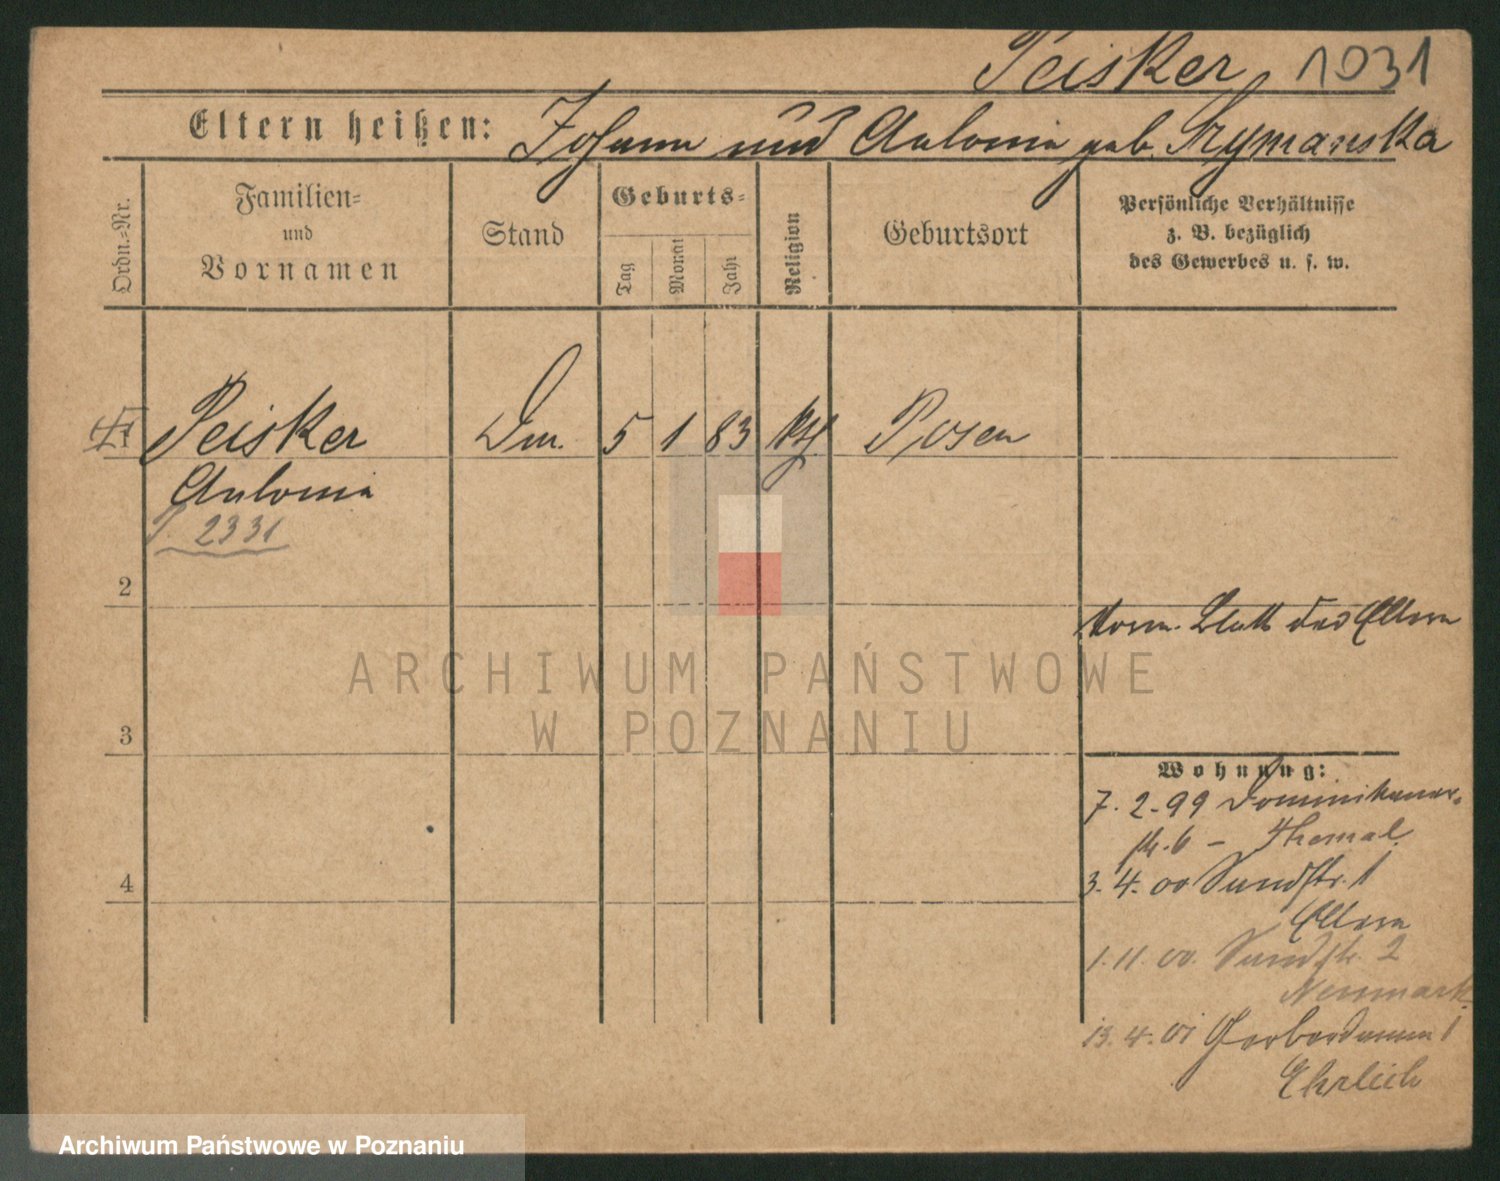 Peisker 1031
Eltern heißen: Johann und Antonie geb. Szymanska
Ordn.-Nr.
Familien- und Vornamen
Stand
Geburts-
Tag
Monat
Jahr
Religion
Geburtsort
Persönliche Verhältnisse
z. B. bezüglich
des Gewerbes u. s. w.
Peisker 5 1 83 kth Posen
Antonie
P. 2331
2
Blatt des Eltern
ARCHIWUM PAŃSTWOWE
W POZNANIU
3
Wohnung:
7.2.99 Dominikaner-
str. 6 –
4
3.4.00 Sandstr. 1
Eltern
1.11.00 Sandstr. 2
Neumark
13.4.01 Gerberdamm 1
Ehrlich
Archiwum Państwowe w Poznaniu